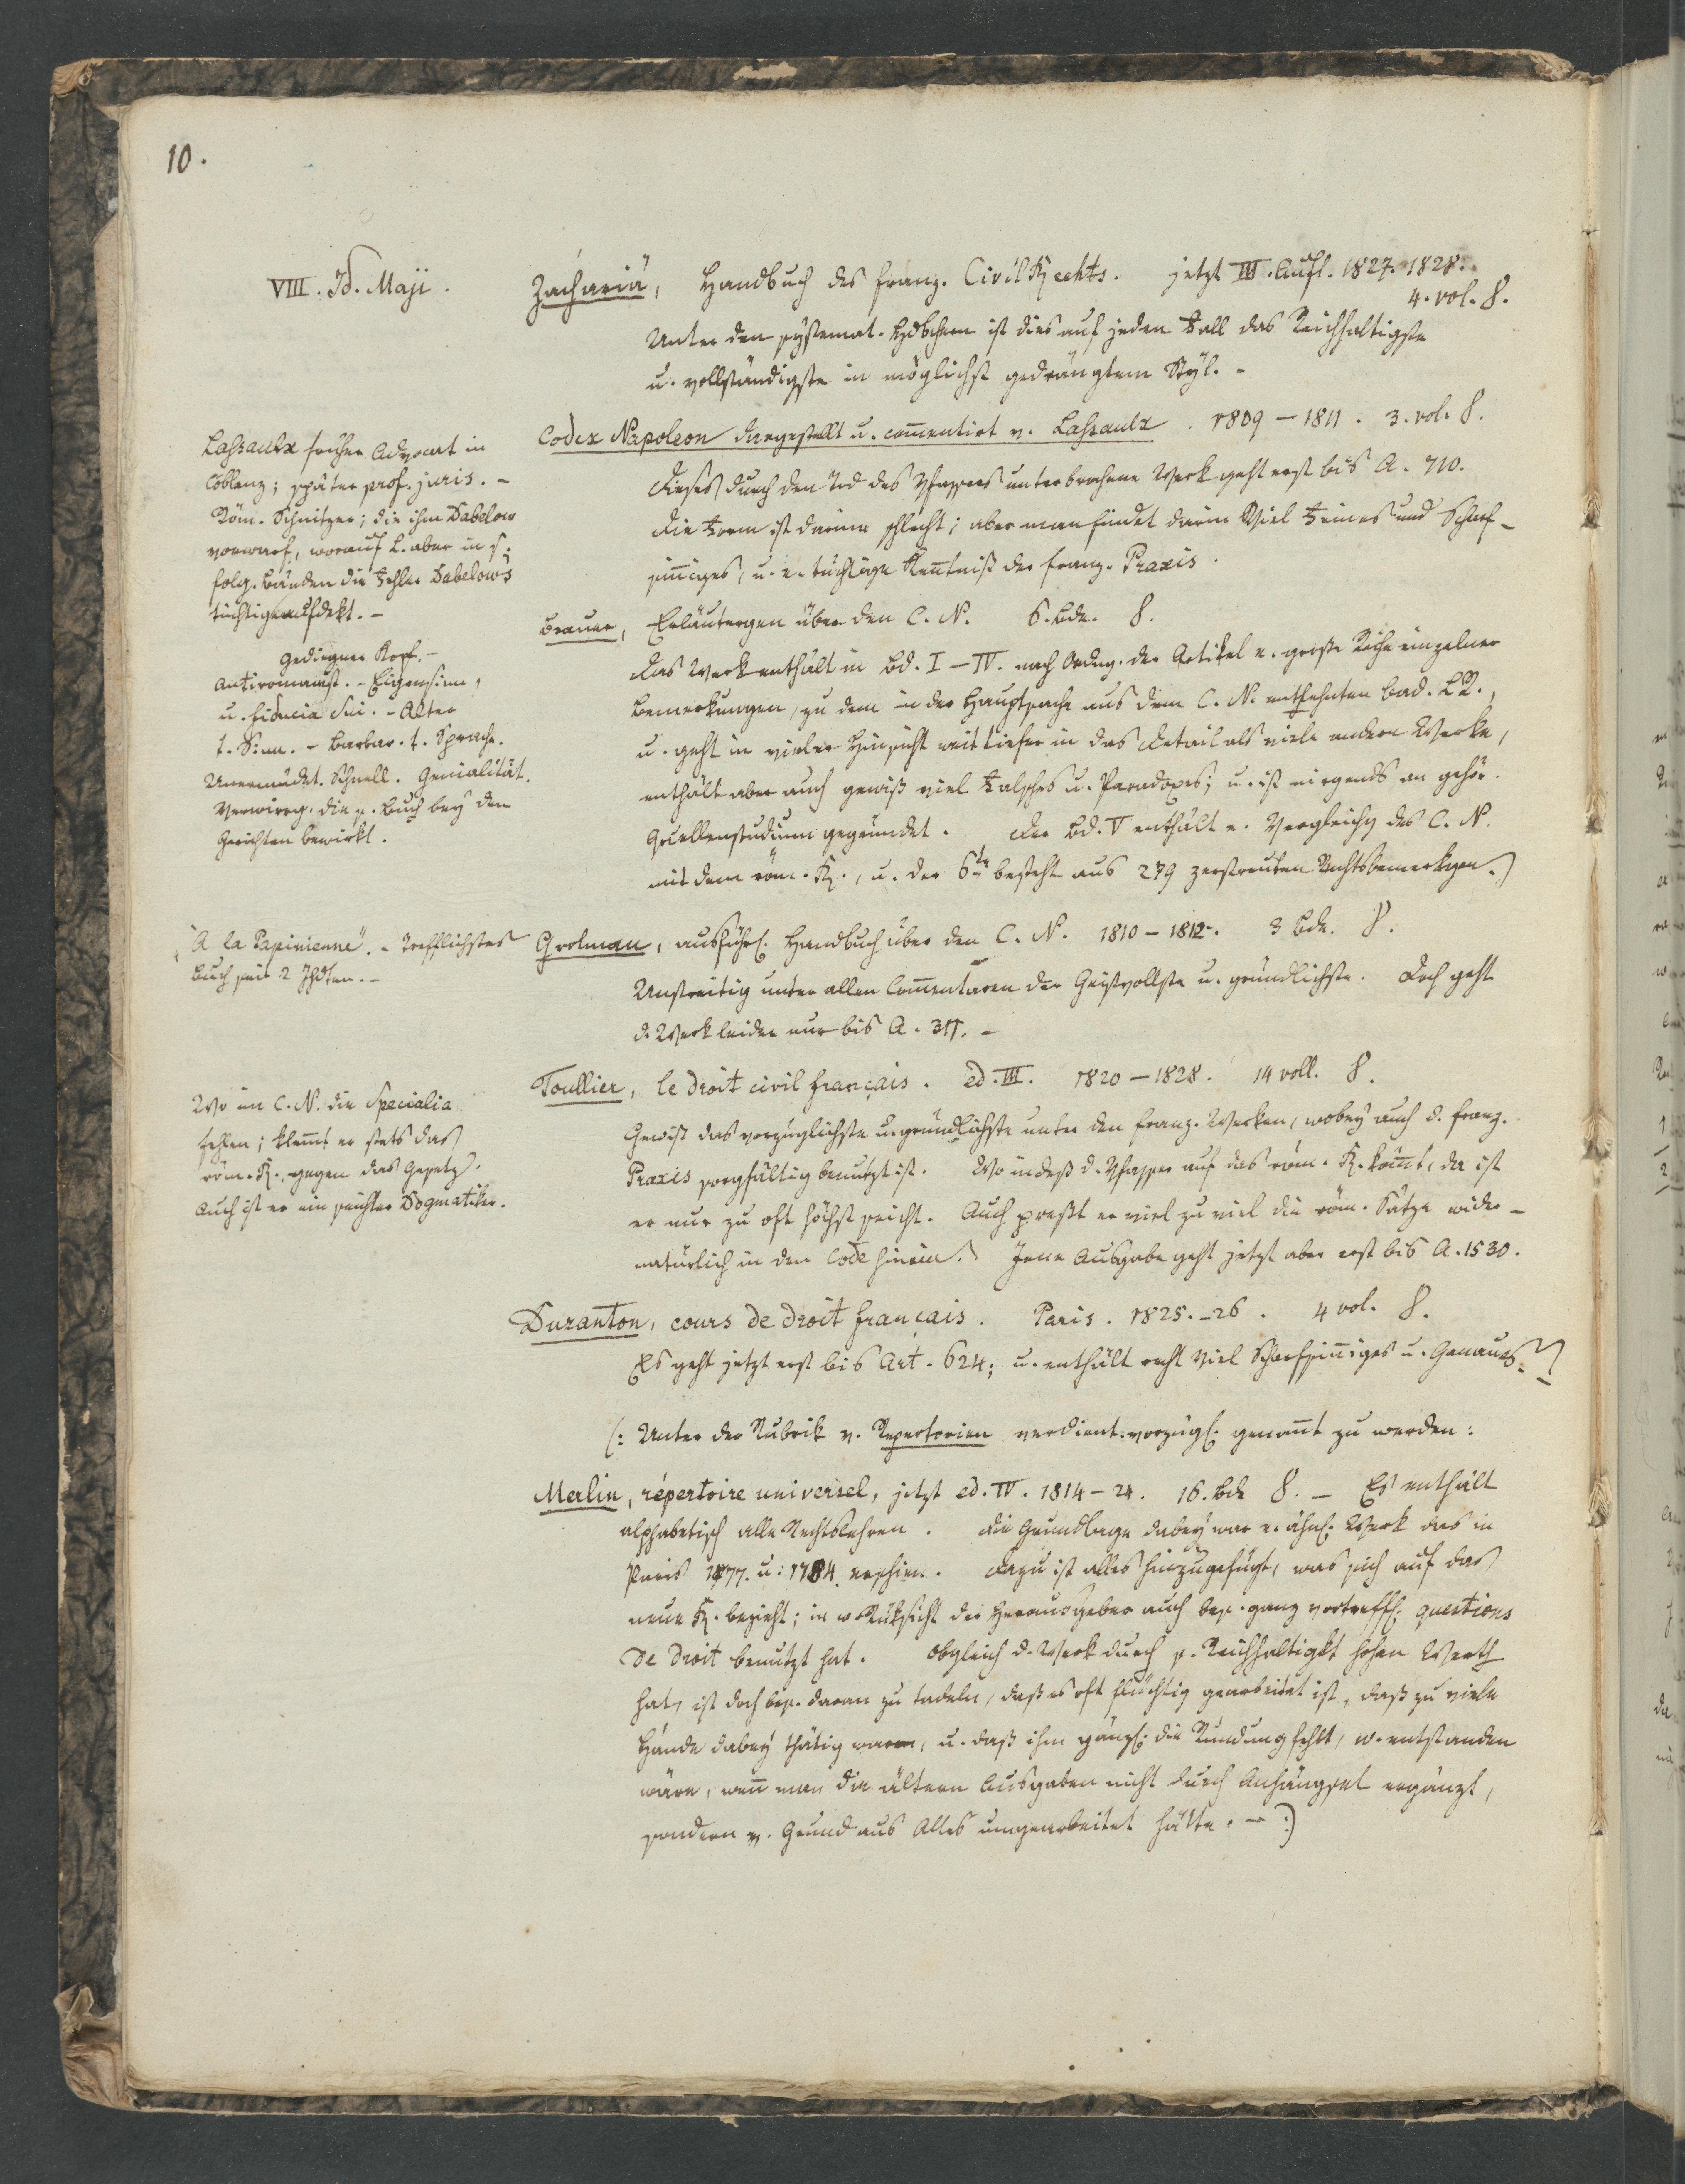 10.
VIII. Id. Maji.
Zachariä, Handbuch des franz. CivilRechts. jetzt III. Aufl. 1827. 1828.
4. vol. 8.
Unter den systemat. Hdbchern ist dies auf jeden Fall das Reichhaltigste
u. vollständigste in möglichst gedrängtem Styl. -
Codex Napoleon dargestellt u. com̅entirt v. Lassaulx. 1809 - 1811. 3. vol. 8.
Dieses durch den Tod des Vfassers unterbrochene Werk geht erst bis A. 710.
Die Form ist darinn schlecht; aber man findet darin Viel Feines und Scharf-
sin̅iges, u. e. tüchtige Ken̅tniß der franz. Praxis.
Lassaulx früher Advocat in
Coblenz; später prof. juris. -
Röm. Schnitzer; die ihm Dabelow
vorwarf, worauf L. aber in s.
folg. Bänden die Fehler Dabelow's
tüchtig aufdekt. -
Brauer, Erläutergen über den C. N. 6. Bde. 8.
Das Werk enthält in Bd. I - IV. nach Ordng. der Artikel e. große Reihe einzelner
Bemerkungen, zu dem in der Hauptsache aus dem C. N. entlehnten bad. LR.,
u. geht in vieler Hinsicht weit tiefer in das Detail als viele andere Werke,
enthält aber auch gewiß viel Falsches u. Paradoxes; u. ist nirgends an gehör.
Quellenstudium gegründet. Der Bd. V enthält e. Vergleichg des C. N.
mit dem röm. R., u. der 6te besteht aus 279 zerstreuten Rechtsbemerkgen.)
Gediegner Kopf. -
Antiromanist. - Eigensinn,
u. fiducia sui. - Alter
t. Sinn. - Barbar. t. Sprache.
Unermüdet. Schnell. Genialität.
Verwirrg. die s. Buch bey den
Gerichten bewirkt.
Grolman, ausführl. Handbuch über den C. N. 1810 - 1812. 3 Bde. 8.
Unstreitig unter allen Com̅entaren der Geistvollste u. gründlichste. Doch geht
d. Werk leider nur bis A. 311. -
"A la Papinienne". - Trefflichstes
Buch seit 2 Jhdten. -
Toullier, le droit civil français. ed. III. 1820 - 1828. 14 voll. 8.
Gewiß das vorzüglichste u. gründlichste unter den franz. Werken, wobey auch d. franz.
Praxis sorgfältig benutzt ist. Wo indeß d. Vfasser auf das röm. R. kom̅t, da ist
er nur zu oft höchst seicht. Auch preßt er viel zu viel die röm. Sätze wider-
natürlich in den Code hinein. Jene Ausgabe geht jetzt aber erst bis A. 1530.
Wo im C. N. die Specialia
fehlen; klem̅t er stets das
röm. R., gegen das Gesetz.
Auch ist er ein seichter Dogmatiker.
Duranton, cours de droit français. Paris. 1825. - 26. 4 vol. 8.
Es geht jetzt erst bis Art. 624; u. enthält recht viel Scharfsin̅iges u. Genaues.
(: Unter der Rubrik v. Repertorien verdient vorzügl. genan̅t zu werden:
Merlin, répertoire universel, jetzt ed. IV. 1814 - 24. 16. Bde 8. - Es enthält
alphabetisch alle Rechtslehren. Die Grundlage dabey war e. ähnl. Werk das in
Paris 1777. u: 1784. erschien. Dazu ist alles hinzugefügt, was sich auf das
neue R. bezieht; in w. Rüksicht der Herausgeber auch bes. ganz vortreffl. questions
de droit benutzt hat. Obgleich d. Werk durch s. Reichhaltigkt hohen Werth
hat, ist doch bes. daran zu tadeln, daß es oft flüchtig gearbeitet ist, daß zu viele
Hände dabey thätig waren, u. daß ihm gänzl. die Rundung fehlt, w. entstanden
wäre, wen̅ man die ältern Ausgaben nicht durch Anhängsel ergänzt,
sondern v. Grund aus Alles umgearbeitet hätte. - :)